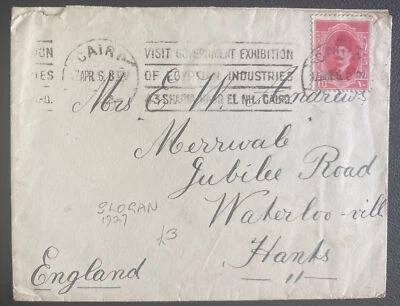 CAIRO
7 APR. 6.8
VISIT GOVERNMENT EXHIBITION
OF EGYPTIAN INDUSTRIES
3 SHARIA KASR EL NIL, CAIRO.
Mrs E. W. Andrews
"Merrivale"
Jubilee Road
Waterloo-ville
Hants
England
SLOGAN
1927
£3